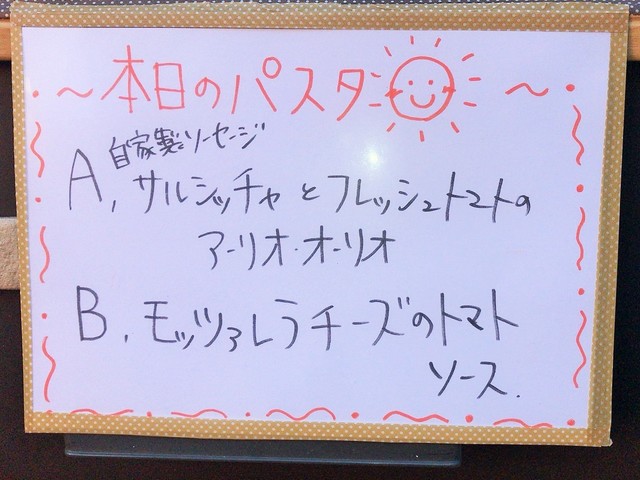 ～本日のパスタ～
自家製ソーセージ
A, サルシッチャとフレッシュトマトの
アーリオ・オーリオ
B, モッツァレラチーズのトマト
ソース.